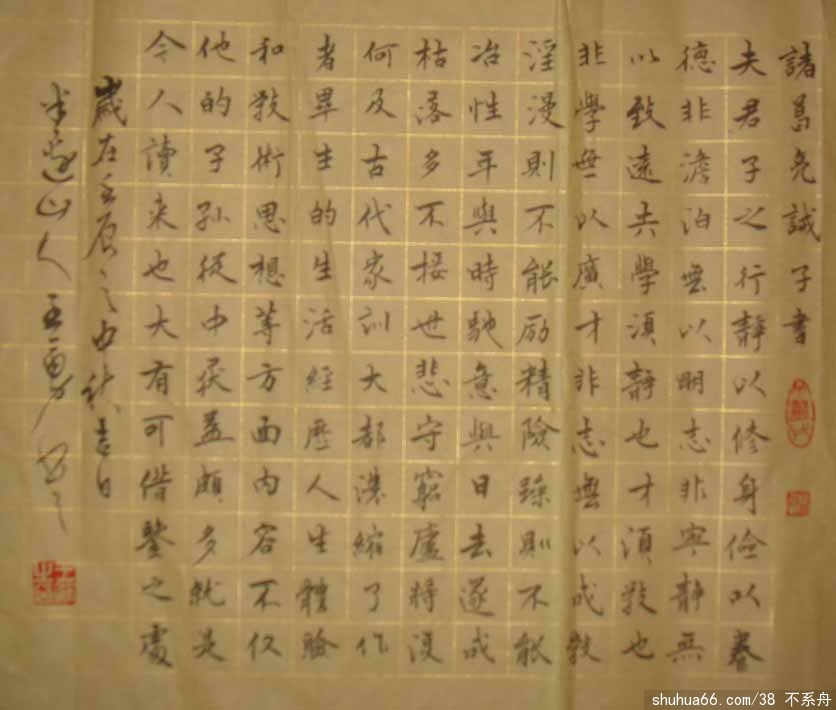 諸葛亮誡子書
夫君子之行靜以修身儉以養
德非澹泊無以明志非寧靜無
以致遠夫學須靜也才須教也
非學無以廣才非志無以成教
淫漫則不能励精險躁則不能
冶性年與時馳意與日去遂成
枯落多不接世悲守窮廬將復
何及古代家訓大都濃縮了作
者畢生的生活經歷人生體驗
和教術思想等方面内容不仅
他的子孙從中获益頗多就是
今人讀来也大有可借鑒之處
歲在壬辰之中秋吉日
半邊山人王勇书之
shuhua66.com/38 不系舟